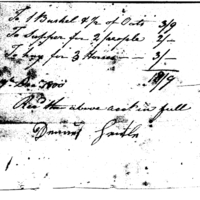 To 1 Bushel & 1/2 of Oats 3/9
To Supper for 2 people 2/-
To hay for 3 Horses 3/-
Dec 1800
Recd the above acct in full
Dennis